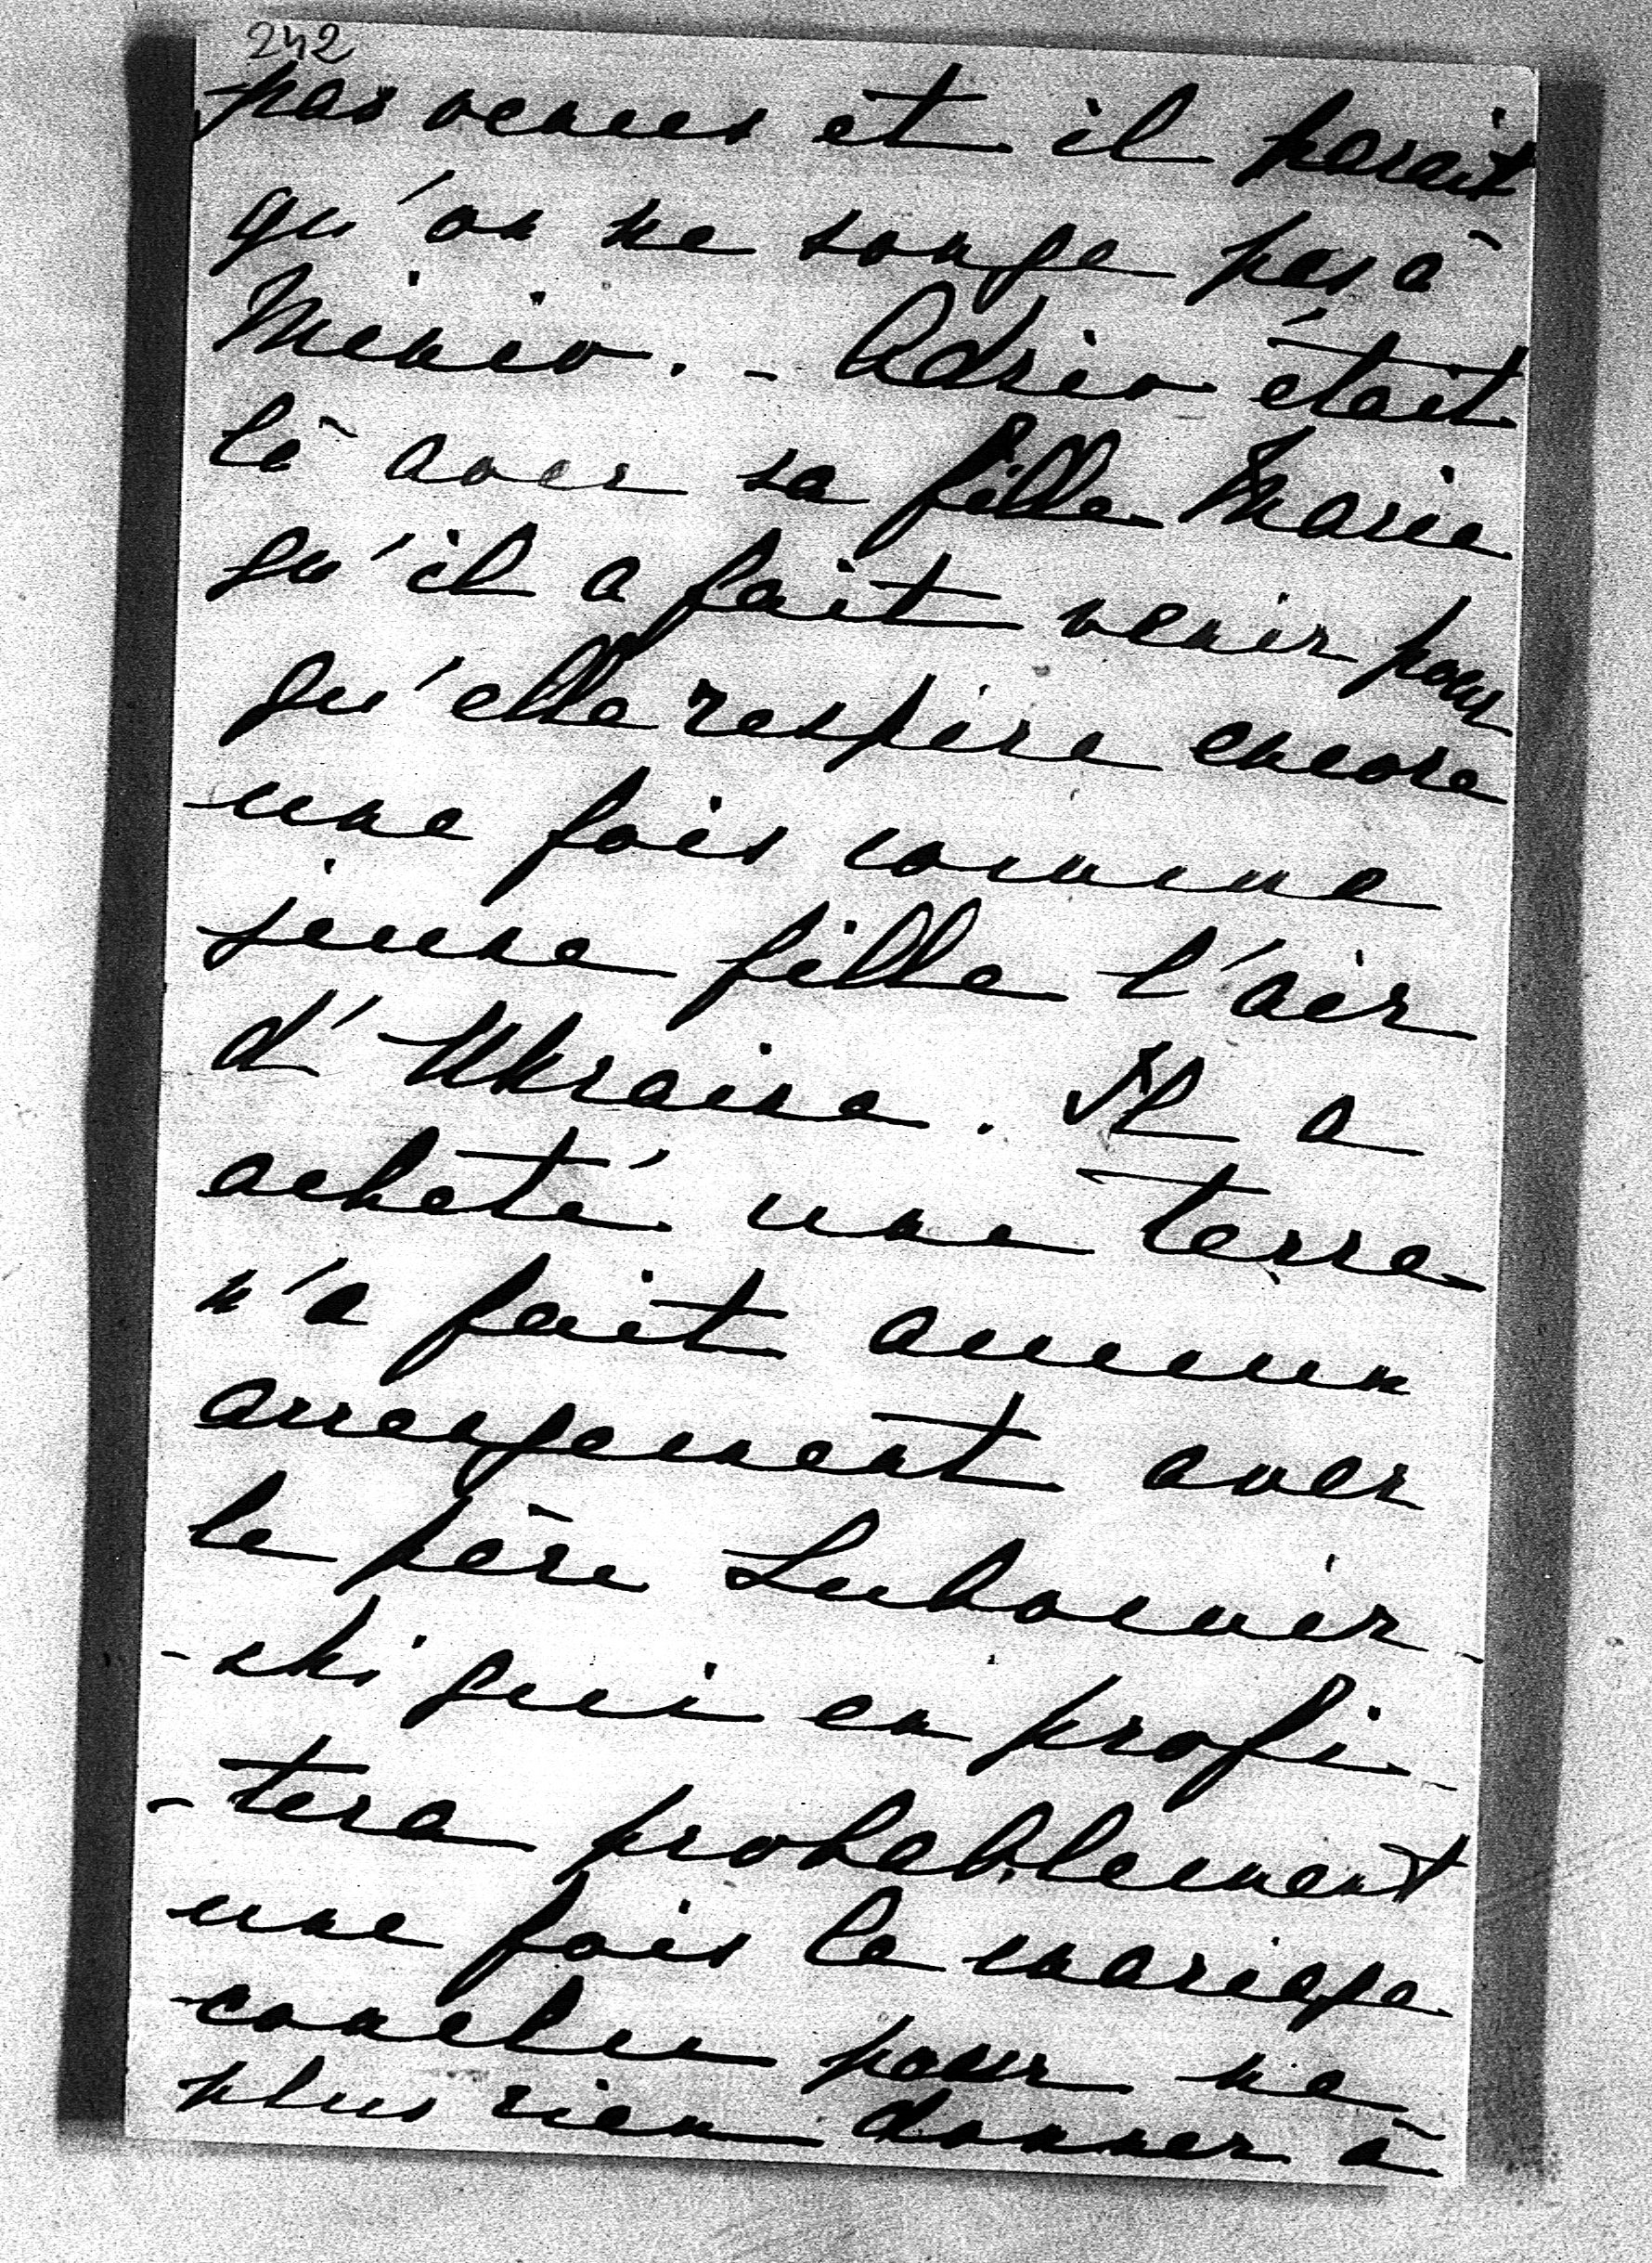 242
pas venues et il parait
qu'on ne songe pas à
Minio. - Adzio était
là avec sa fille Marie
qu'il a fait venir pour
qu'elle respire encore
une fois comme
jeune fille l'air
d'Ukraine. Il a
acheté une terre
n'a fait aucun
arrangement avec
le père Lubomir-
-ski qui en profi-
-tera probablement
une fois le mariage
conclu pour ne
plus rien donner à